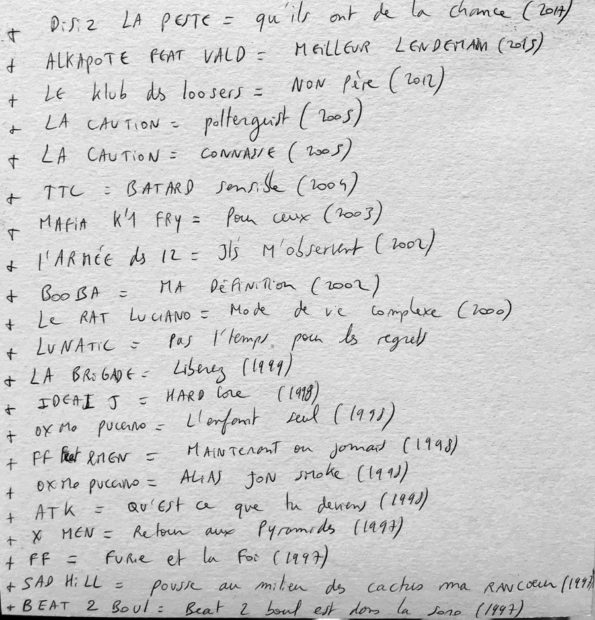 + Disiz LA PESTE = qu'ils ont de la chance (2017)
+ ALKAPOTE FEAT VALD = MEILLEUR LENDEMAIN (2015)
+ LE klub ds loosers = NON Père (2012)
+ LA CAUTION = polterguist (2005)
+ LA CAUTION = CONNASSE (2005)
+ TTC = BATARD sensible (2004)
+ MAFIA K'1 FRY = Pour ceux (2003)
+ l'ARMÉE ds 12 = Ils M'observent (2002)
+ BOOBA = MA DéFiNiTion (2002)
+ Le RAT LUCIANO = Mode de vie complexe (2000)
+ LUNATIC = Pas l'temps pour les regrets
+ LA BRIGADE = Liberez (1999)
+ IDEAL J = HARD Core (1998)
+ OXMO PUCCINO = L'enfant seul (1998)
+ FF feat RMEN = MAINTENANT ou jamais (1998)
+ OXMO PUCCINO = ALIAS JON smoke (1998)
+ ATK = QU'EST ce que tu deviens (1998)
+ X MEN = Retour aux Pyramids (1997)
+ FF = FURIE et la Foi (1997)
+ SAD HILL = pousse au milieu des cactus ma RANCOEUR (1997)
+ BEAT 2 BOUL = Beat 2 boul est dans la sono (1997)